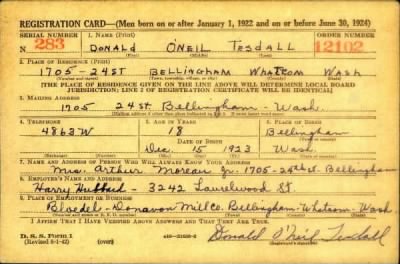 REGISTRATION CARD—(Men born on or after January 1, 1922 and on or before June 30, 1924)
SERIAL NUMBER
1. NAME (Print)
ORDER NUMBER
N 283
DONALD O'NEIL TESDALL
12102
(First) (Middle) (Last)
2. PLACE OF RESIDENCE (Print)
1705-24ST BELLINGHAM WHATCOM WASH
(Number and street) (Town, township, village, or city) (County) (State)
[THE PLACE OF RESIDENCE GIVEN ON THE LINE ABOVE WILL DETERMINE LOCAL BOARD
JURISDICTION; LINE 2 OF REGISTRATION CERTIFICATE WILL BE IDENTICAL]
3. MAILING ADDRESS
1705 24 St. Bellingham - Wash.
4. TELEPHONE
5. AGE IN YEARS
6. PLACE OF BIRTH
4863W
18
Bellingham
DATE OF BIRTH
Dec. 15 1923
Wash.
7. NAME AND ADDRESS OF PERSON WHO WILL ALWAYS KNOW YOUR ADDRESS
Mrs. Arthur Moreau Jr. 1705-24th St. Bellingham
8. EMPLOYER'S NAME AND ADDRESS
Harry Hubbard - 3242 Laurelwood St
9. PLACE OF EMPLOYMENT OR BUSINESS
Bloedel-Donavon Mill Co. Bellingham-Whatcom-Wash
I AFFIRM THAT I HAVE VERIFIED ABOVE ANSWERS AND THAT THEY ARE TRUE.
D. S. S. Form 1
(Revised 6-1-42) (over)
Donald O'Neil Tesdall